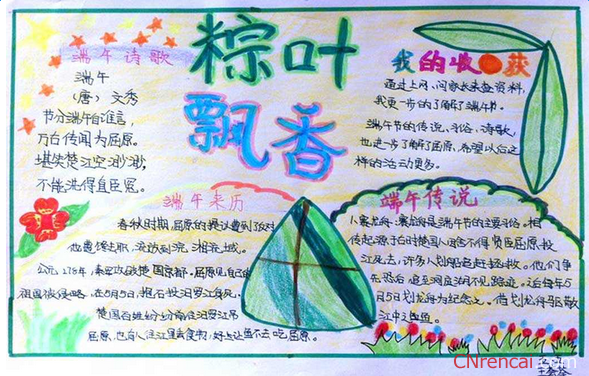 粽叶
飘香
端午诗歌
端午
(唐) 文秀
节分端午自谁言,
万古传闻为屈原。
堪笑楚江空渺渺,
不能洗得直臣冤。
我的收获
通过上网、问家长来查资料,
我更一步的了解了端午节。
端午节的传说、习俗、诗歌,
也进一步了解了屈原,希望以后这
样的活动更多。
端午来历
春秋时期,屈原的提议遭到了反对
他遭馋去职,流放到沅、湘流域。
公元278年,秦军攻破楚国京都。屈原见自己的
祖国被侵略,在5月5日,抱石投汨罗江身死,
楚国百姓纷纷涌往汨罗江吊
屈原,也有人往江里丢食物,好让鱼不去吃屈原。
端午传说
赛龙舟:赛龙舟是端午节的主要习俗。相
传起源于古时楚国人因舍不得贤臣屈原投
江死去,许多人划船追赶拯救。他们争
先恐后,追至洞庭湖不见踪迹。之后每年5
月5日划龙舟为纪念之。借划龙舟驱散
江中之鱼
CNrencai.com